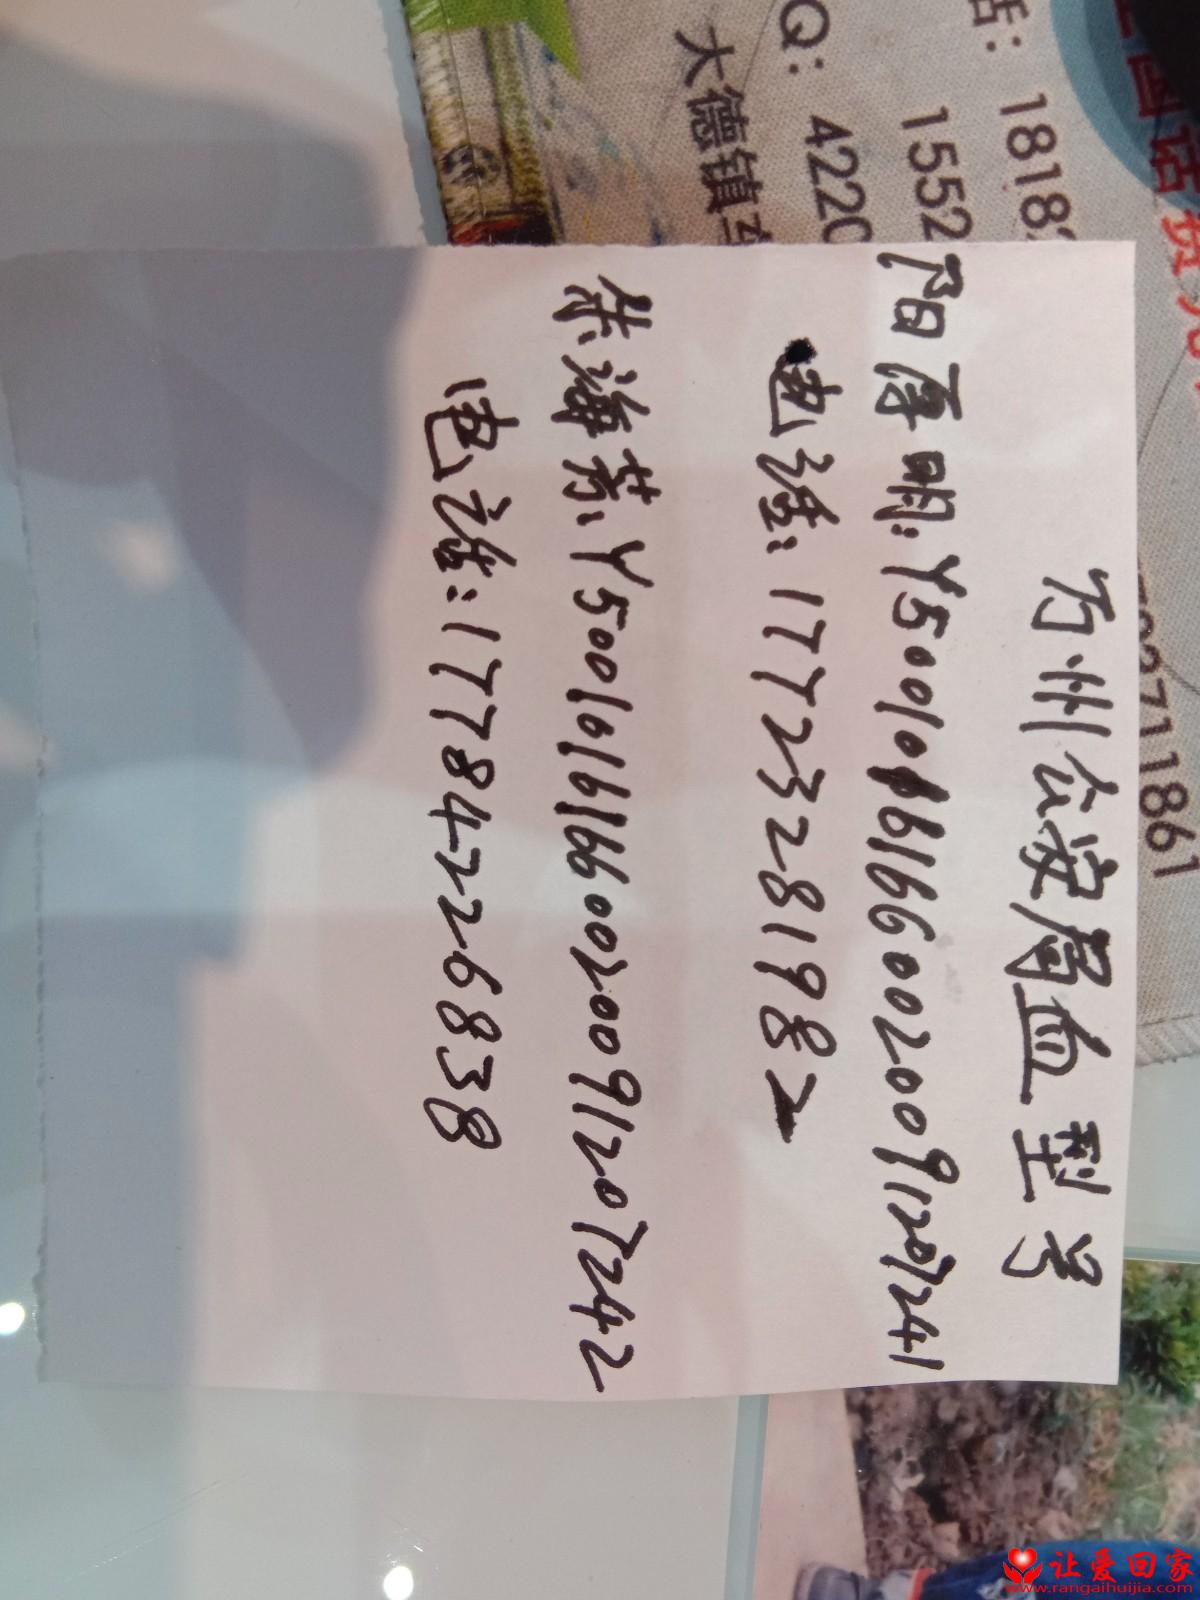 万州公安局血型号
阳厚明:Y50010161660020091207241
电话:17723281982
朱海芳、Y50010161660020091207242
电话:17784226838
话: 1818
1552
Q: 4220
大德镇
711861
让爱回家
www.rangaihuijia.com